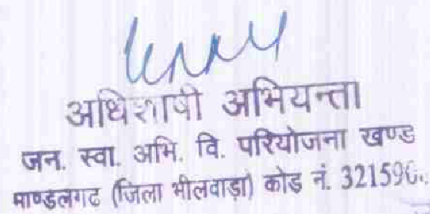 अधिशाषी अभियन्ता
जन. स्वा. अभि. वि. परियोजना खण्ड
माण्डलगढ (जिला भीलवाड़ा) कोड नं. 321596